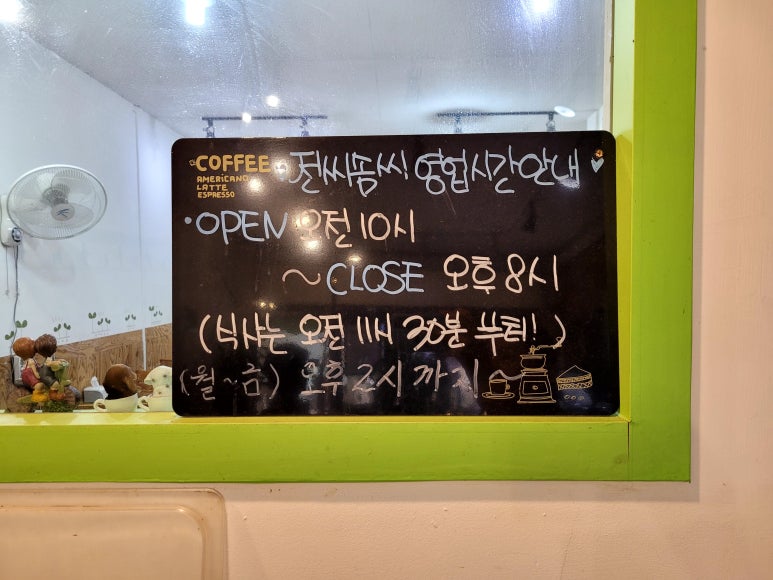 COFFEE
AMERICANO
LATTE
ESPRESSO
전씨솜씨! 영업시간안내
•OPEN 오전 10시
~CLOSE 오후 8시
(식사는 오전 11시 30분 부터!)
(월~금) 오후 2시 까지~